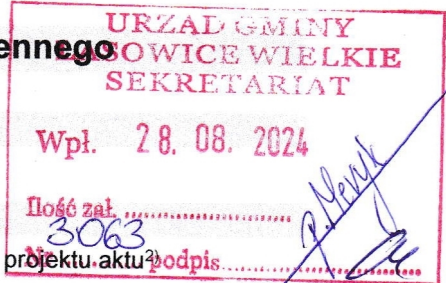 URZĄD GMINY
ennego
LASOWICE WIELKIE
SEKRETARIAT
Wpł. 28. 08. 2024
Ilość zał. ..............................
3063
projektu aktu²⁾
podpis..............................